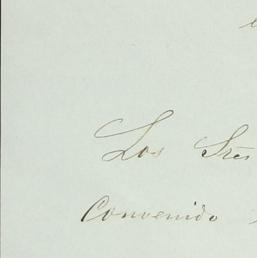 Los Sres
Convenido